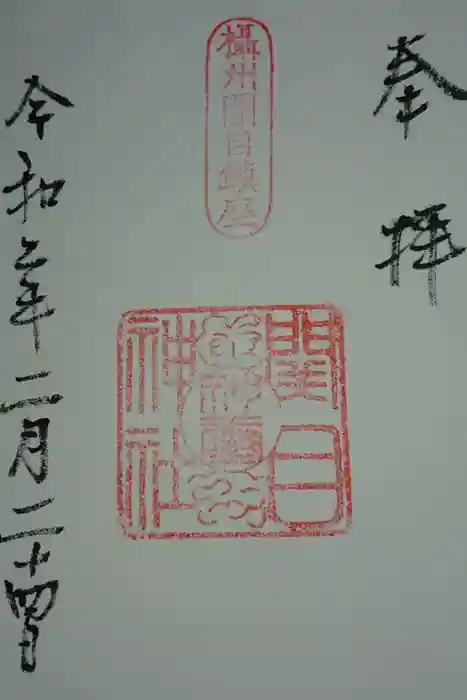 奉拝
攝州関目鎮座
関目
神社
令和三年二月二十四日